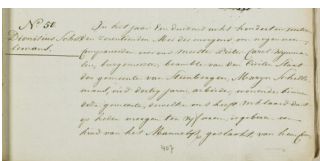 N° 50
Dionisius Schel-
lemans.
In het jaar Een duizend acht honderd en
den Mei des morgens ten negen uur,
voor ons Meester Pieter Carel
burgemeester beambte van den Burger Staat
der gemeente van Steenbergen, Marijn Schelle
mans, oud dertig jaren, arbeider, wonende binnen
deze gemeente, dewelke ons heeft verklaard dat
op heden morgen ten vijf uren, is geboren een
kind van het Mannelijk geslacht van
407